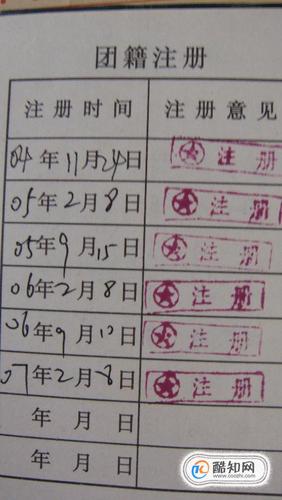 团籍注册
注册时间 注册意见
04年11月24日 注册
05年2月8日 注册
05年9月15日 注册
06年2月8日 注册
06年9月10日 注册
07年2月8日 注册
年 月 日
年 月 日
酷知网
www.coozhi.com